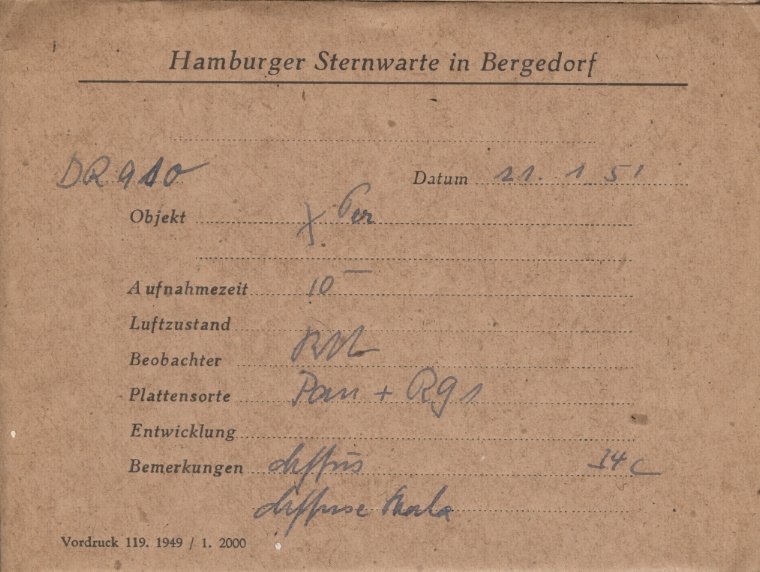 Hamburger Sternwarte in Bergedorf
DR 910 Datum 21. 1. 51
Objekt χ Per
Aufnahmezeit 10
Luftzustand
Beobachter
Plattensorte Pan + RG1
Entwicklung
Bemerkungen diffus 34c
diffuse
Vordruck 119. 1949 / 1. 2000